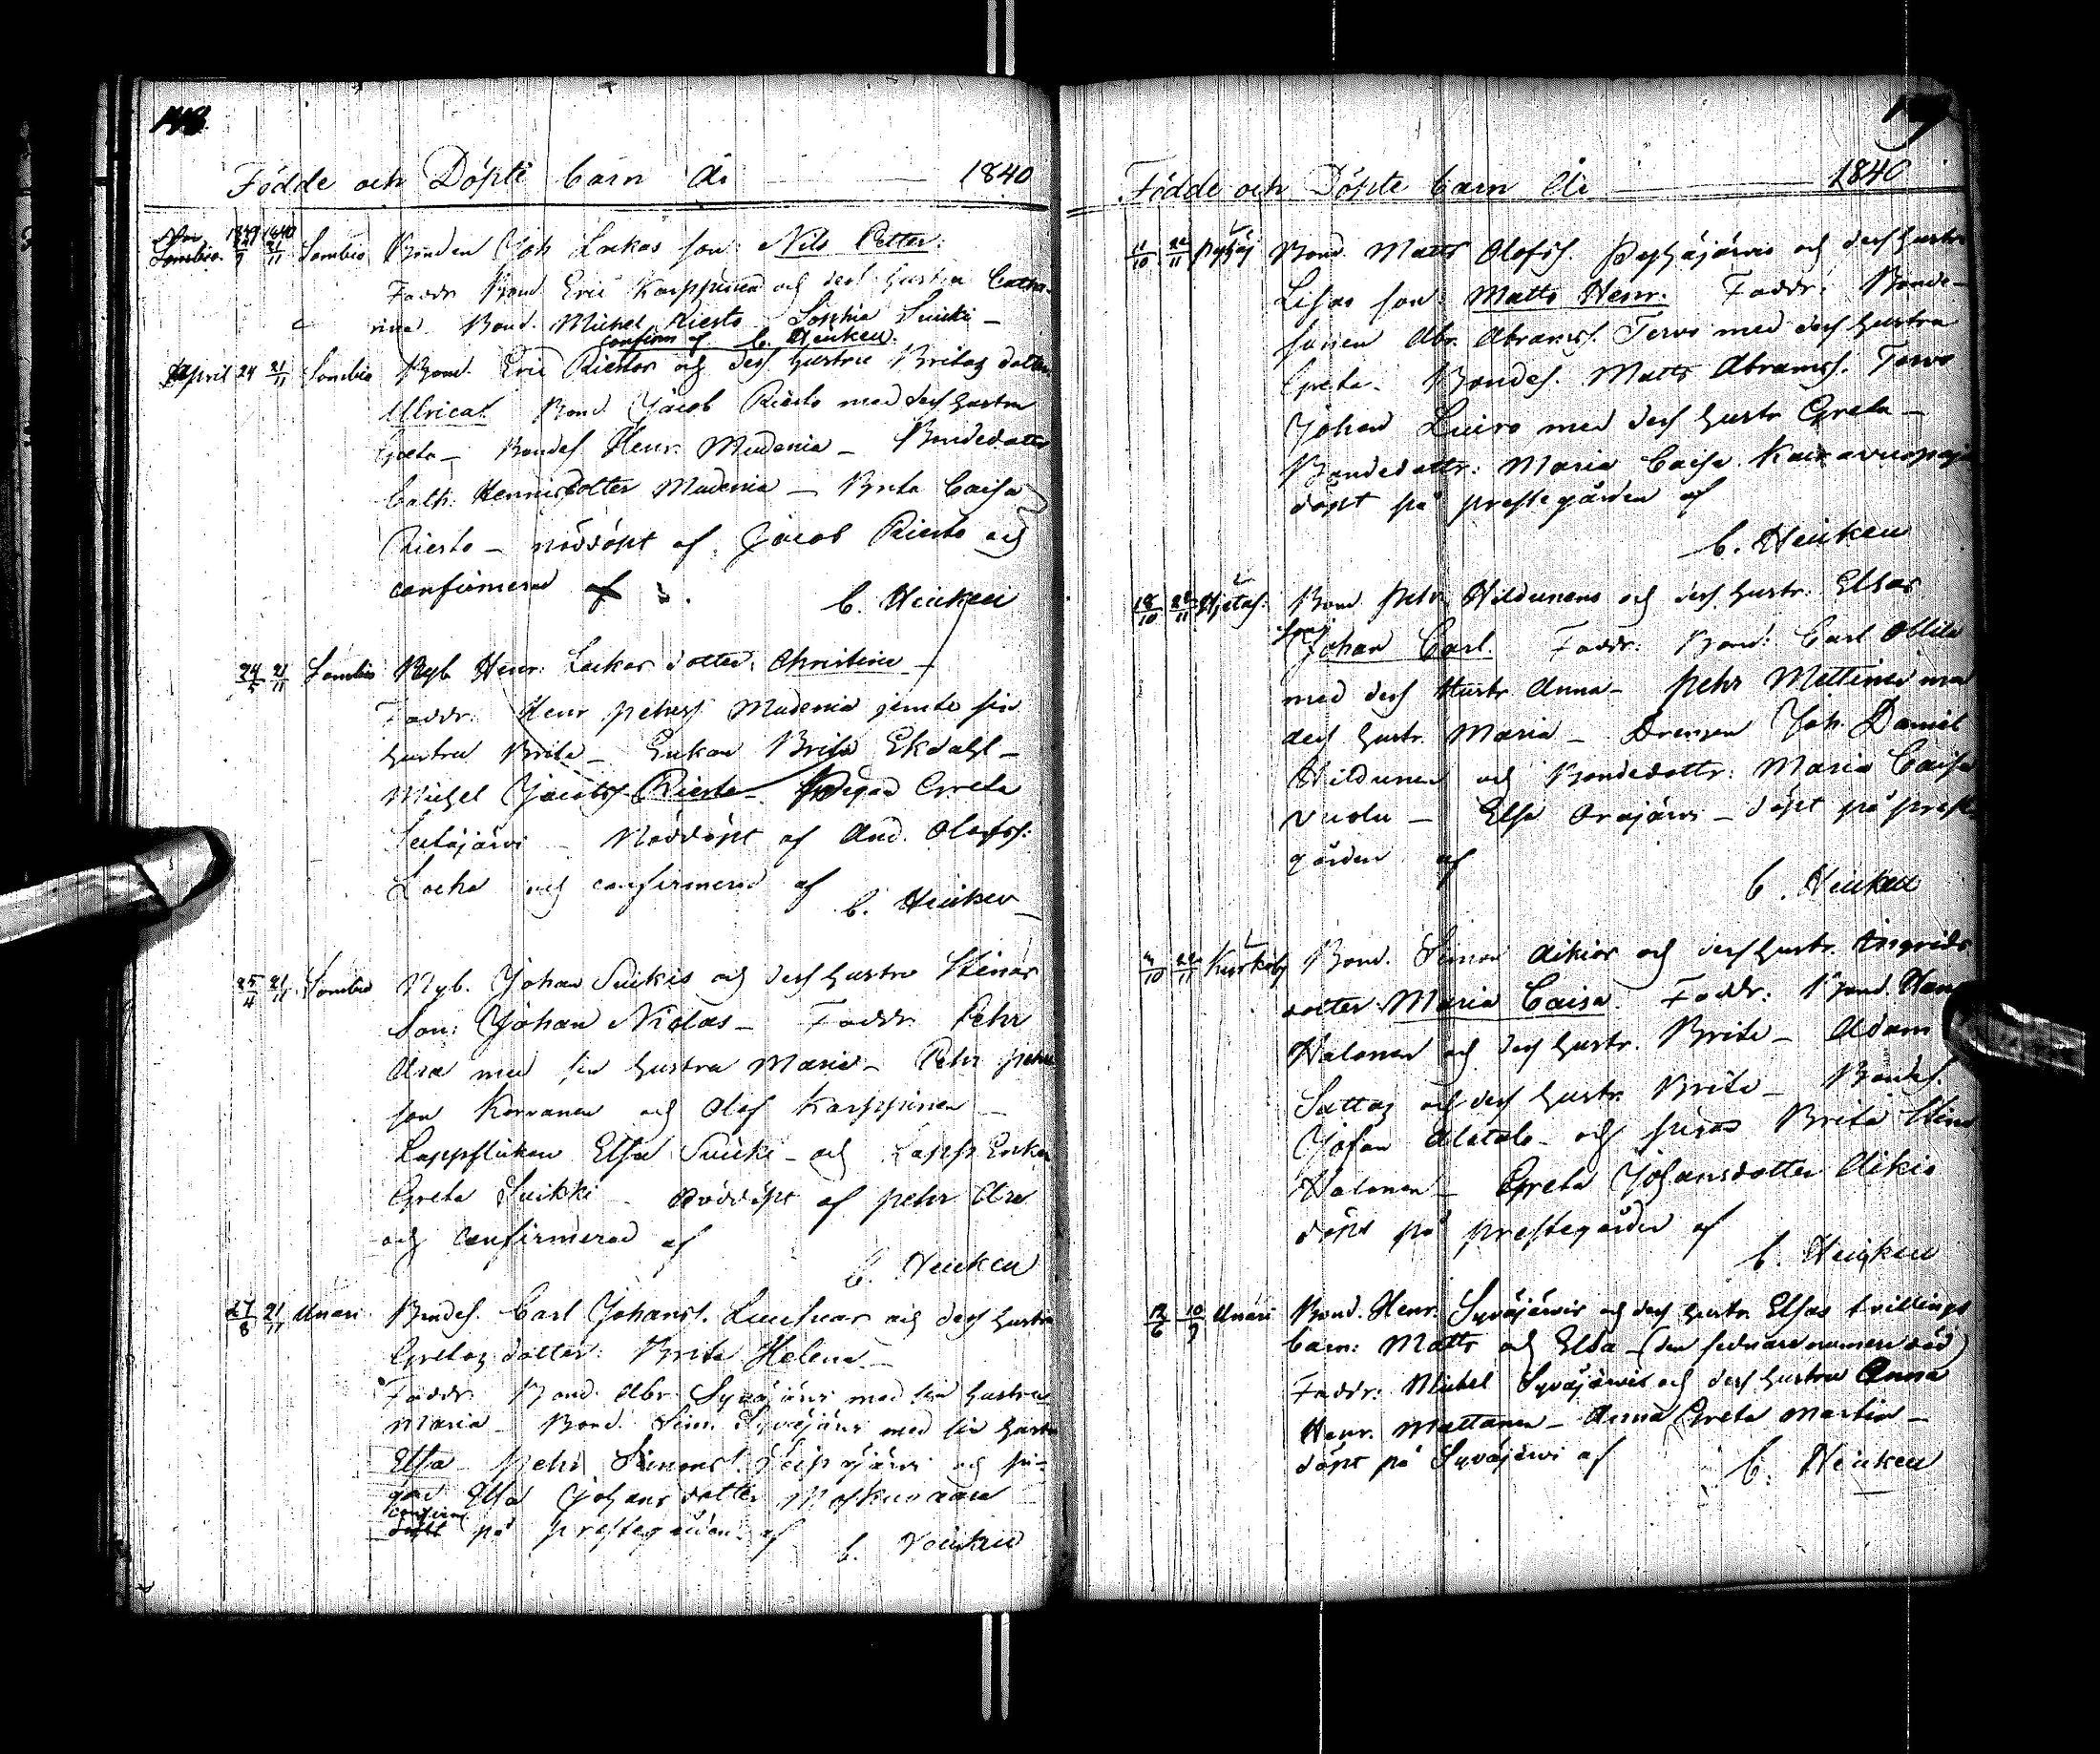 Födde och Döpte barn År 1840
Sombio Bonden Joh Lockas son: Nils Petter:
Faddr Bond Eric Karppinen och dess hustru Catha-
rina Bond. Michel Riesto Sophia Suikki –
confirm af C. Heickell.
April 24 21/11 Sombio Bond. Eric Riestos och dess hustru Britas dotter
Ulrica. Bond Jacob Riesto med dess hustru
Greta – Bondes. Henr. Mudenia – Bondedotter
Cath. Henricsdotter Mudenia – Brita Caisa
Riesto – nöddöpt af Jacob Riesto och
confirmerad af C. Heickell
24/5 21/11 Sombio Nyb. Henr: Lockas dotter, Christina –
Faddr: Henr pehrss Mudenia jemte sin
hustru Brita – Enkan Brita Ekdahl –
Michel Jacobss Riesto – Pigan Greta
Seitajärvi – Nöddöpt af And. Olofss:
Locka och confirmerad af
C. Heickell –
25/4 21/11 Sombio Nyb. Johan Suikis och dess hustru Stinas
Son: Johan Niclas – Faddr Pehr
Ara med sin hustru Maria – Pehr pehr
son Korvanen och Olof Karppinen –
Lappflickan Elsa Suikki – och Lapp Enkan
Greta Suikki – Nöddöpt af pehr Ara
och confirmerad af
C. Heickell
27/8 21/11 Unari Bondes. Carl Johanss. Luusuas och dess hustru
Gretas dotter: Brita Helena –
Faddr. Bond. Abr. Syväjärvi med sin hustru
Maria – Bond. Sim. Syväjärvi med sin hustru
Elsa – pehr Simonss. Seipäjärvi och pi-
gan Elsa Johansdotter Moskuvaara
confirm
döpt på prestegården af C. Heickell
Födde och Döpte barn År 1840
11/10 22/11 Pyhäj Bond. Matts Olofss. Pyhäjärvis och dess hustru
Lisas son: Matts Henr. Faddr: Bonde-
sonen Abr. Abramss. Tervo med dess hustru
Greta – Bondes. Matts Abramss. Tervo
Johan Luiro med dess hustr Greta –
Bondedottr: Maria Caisa
döpt på prestegården af
C. Heickell
18/10 22/11 Hjetaf. Bond pehr Hildunens och dess hustr. Elsas
son Johan Carl. Faddr: Bond: Carl Ollila
med dess Hustr Anna – pehr Mettinen med
dess hustr. Maria – Drengen Joh. Daniel
Hildunen och Bondedottr: Maria Caisa
Vuolu – Elsa Orajärvi – döpt på preste-
gården af
C. Heickell
22/11 Bond. Simon Aikios och dess hustr. Ingrids
dotter Maria Caisa. Faddr: Bond.
Halonen och dess hustr. Brita – Adam
Sattas och dess hustr. Brita – Bondes.
Johan Alatalo – och pigan Brita Stina
Halonen – Greta Johansdotter Aikio
döpt på prestegården af
C. Heickell
12/6 10/9 Unari Bond. Henr. Syväjärvis och dess hustr Elsas tvillings
barn: Matts och Elsa – (den sednare numera död)
Faddr: Michel Syväjärvi och dess hustru Anna
Henr. Mattanen – Anna Greta Martin –
döpt på Syväjärvi af C. Heickell